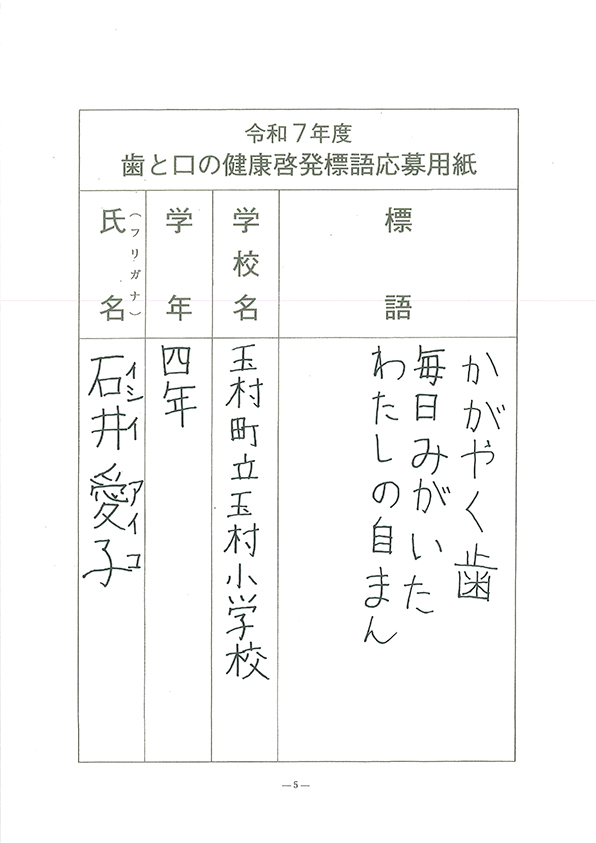 令和7年度
歯と口の健康啓発標語応募用紙
標語
かがやく歯
毎日みがいた
わたしの自まん
学校名
玉村町立玉村小学校
学年
四年
氏名
(フリガナ)
イシイ アイコ
石井 愛子
—5—